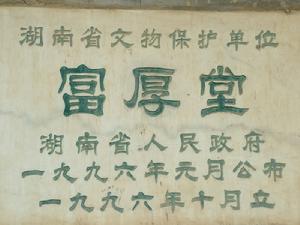 湖南省文物保护单位
富厚堂
湖南省人民政府
一九九六年元月公布
一九九六年十月立